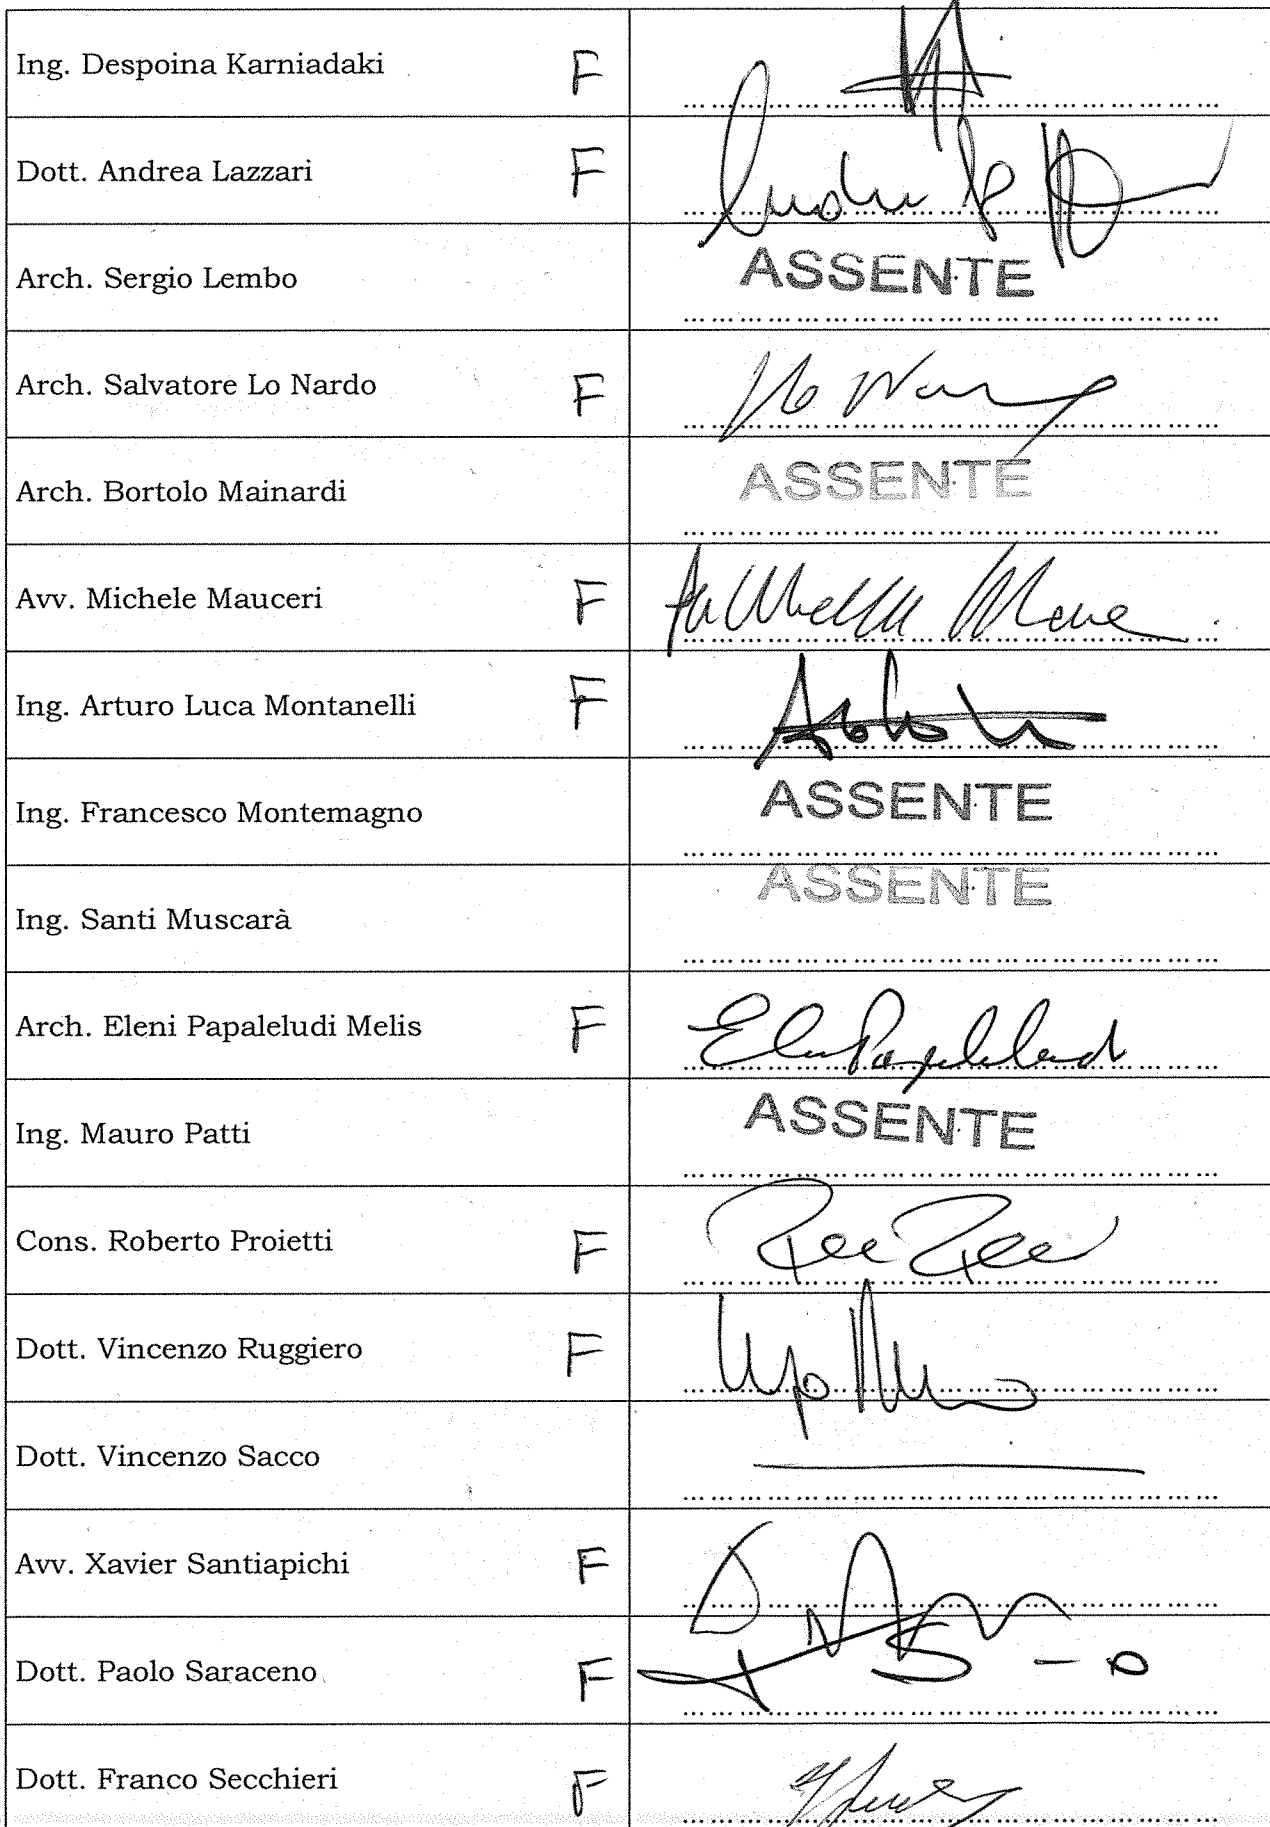 Ing. Despoina Karniadaki F
Dott. Andrea Lazzari F
Arch. Sergio Lembo ASSENTE
Arch. Salvatore Lo Nardo F
Arch. Bortolo Mainardi ASSENTE
Avv. Michele Mauceri F
Ing. Arturo Luca Montanelli F
Ing. Francesco Montemagno ASSENTE
Ing. Santi Muscarà ASSENTE
Arch. Eleni Papaleludi Melis F
Ing. Mauro Patti ASSENTE
Cons. Roberto Proietti F
Dott. Vincenzo Ruggiero F
Dott. Vincenzo Sacco
Avv. Xavier Santiapichi F
Dott. Paolo Saraceno F
Dott. Franco Secchieri F